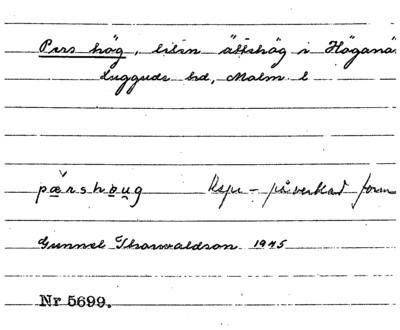 Pers hög, liten ättehög i Höganä
Luggude hd, Malm l
pærshøug Rspr - påverkad form
Gunnel Thorvaldson 1945
Nr 5699.